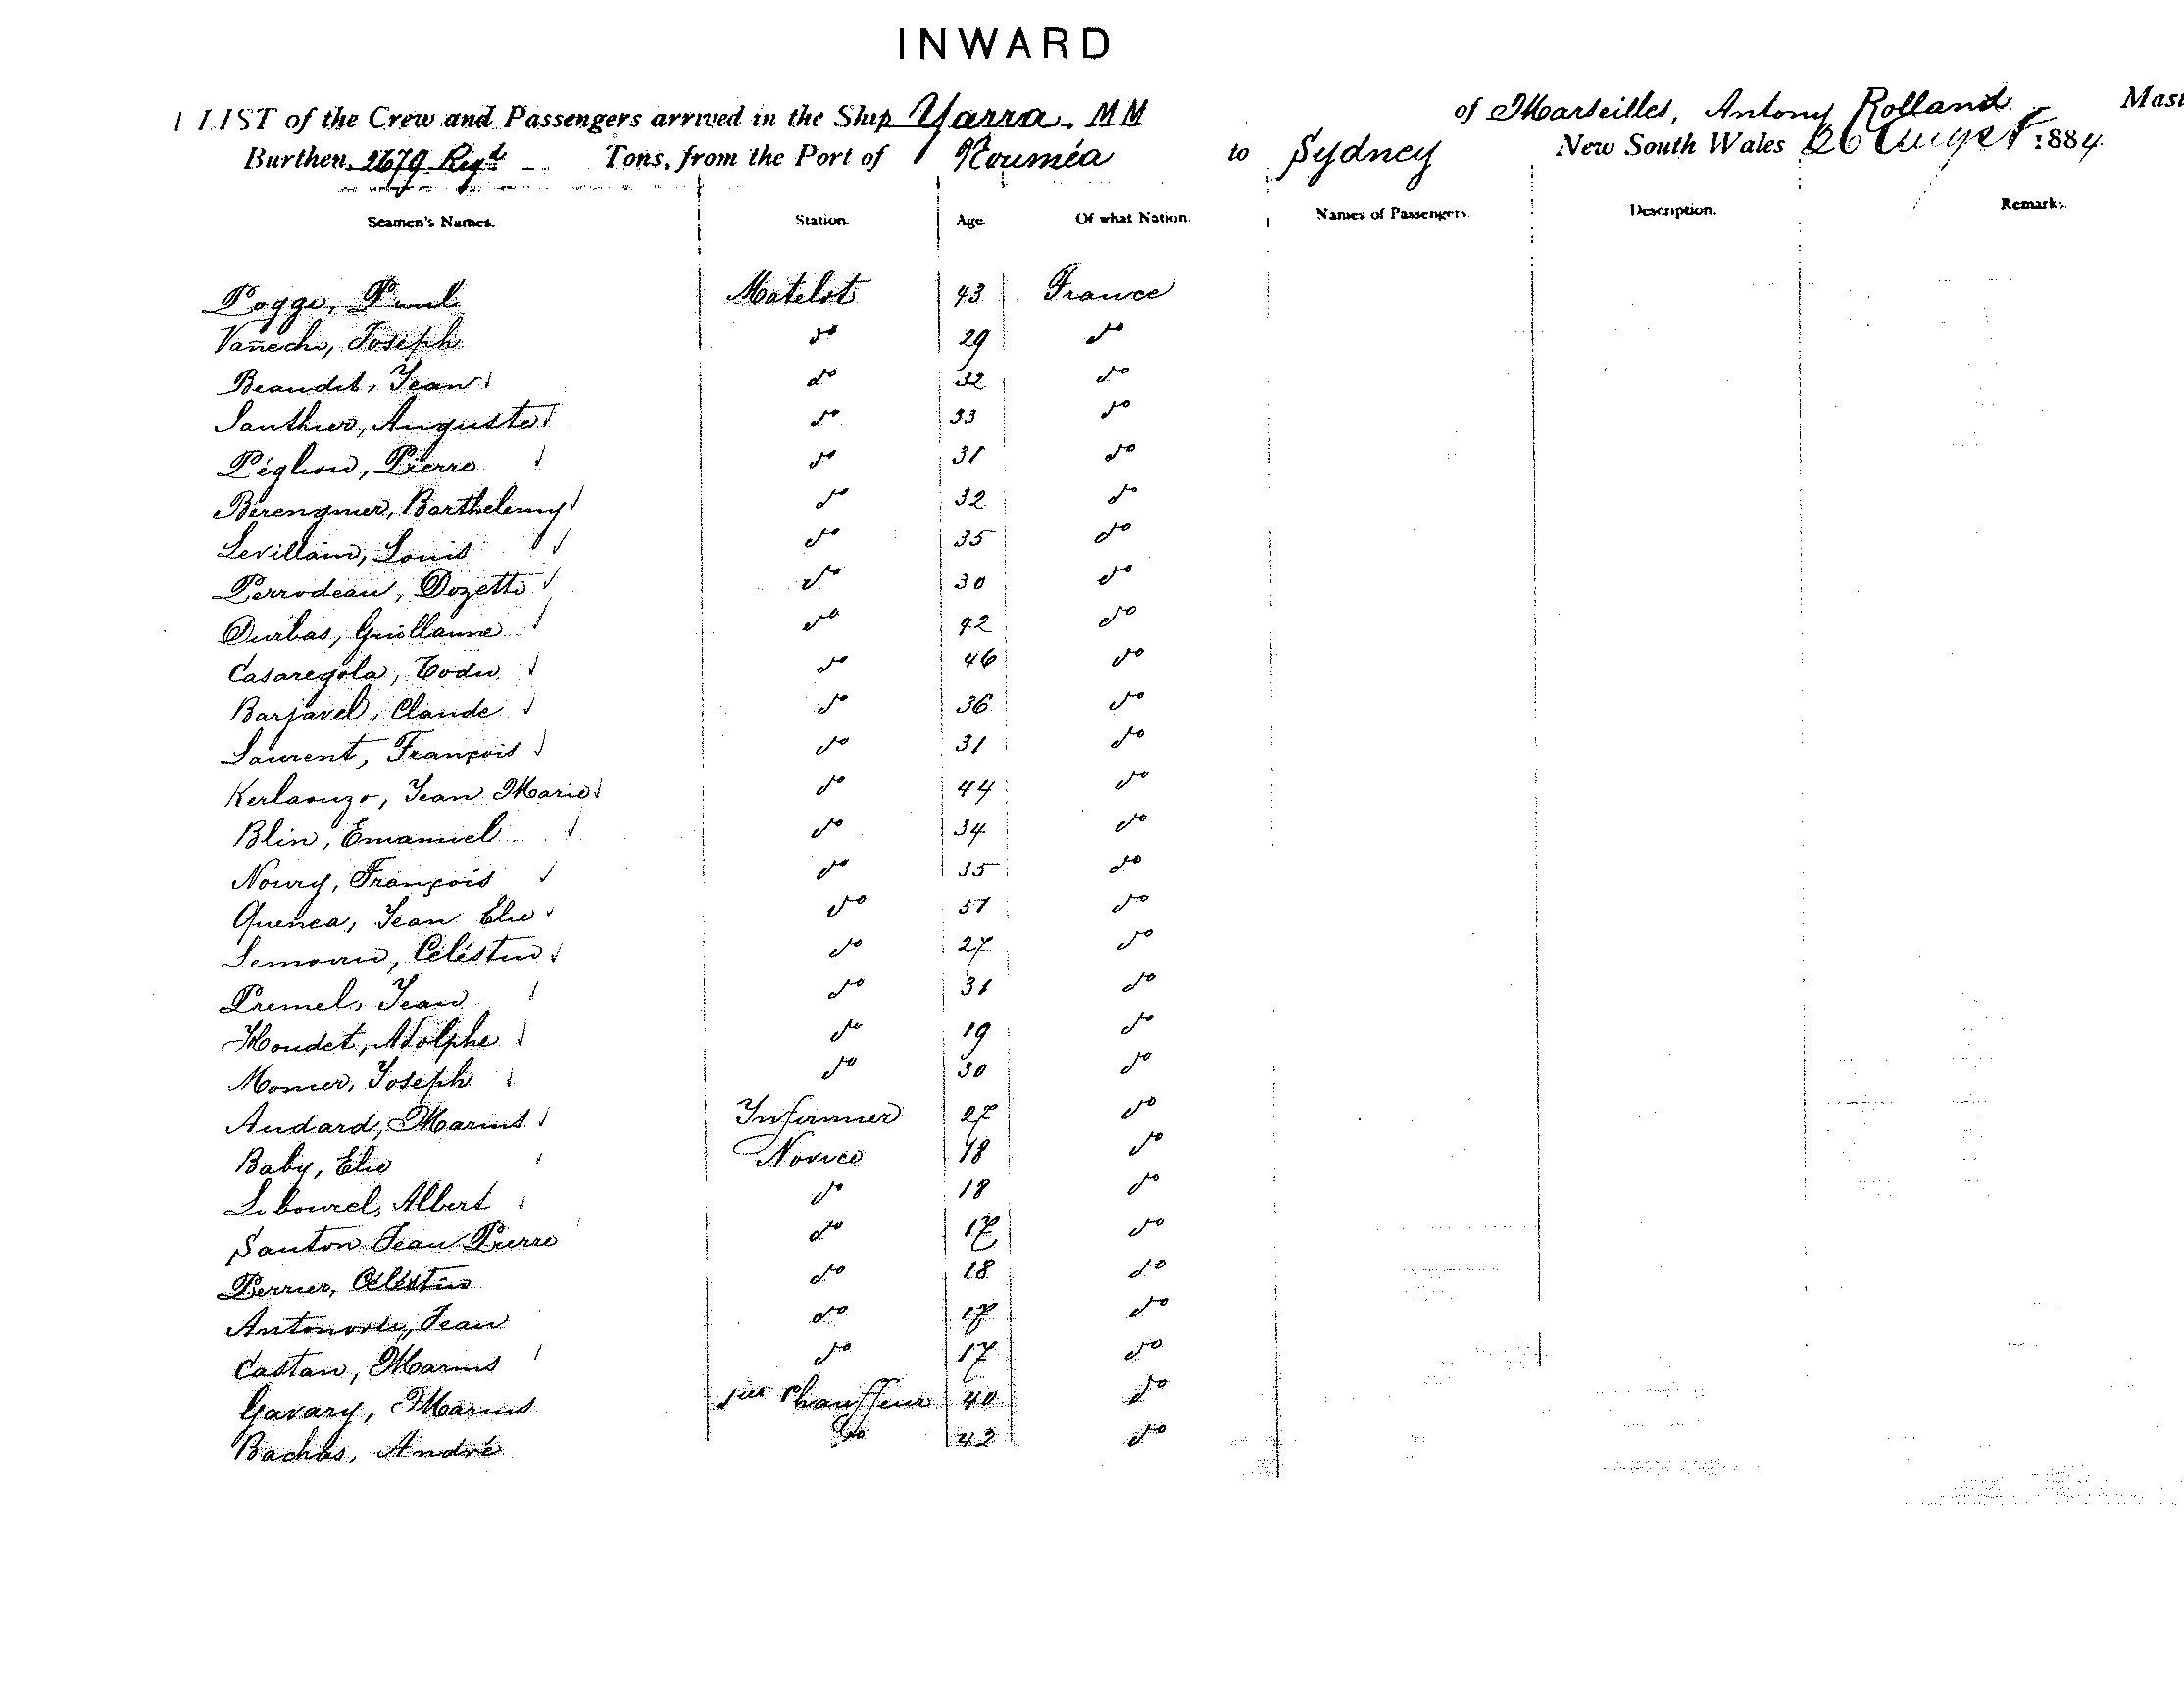 INWARD
LIST of the Crew and Passengers arrived in the Ship Yarra. MM of Marseilles, Antony Rolland Mast
Burthen, 2679 Rigt Tons, from the Port of Nouméa to Sydney New South Wales 26 August 1884
Seamen's Names. Station. Age. Of what Nation. Names of Passengers. Description. Remarks.
Poggi, Paul Matelot 43 France
Joseph do 29 do
Beaudet, Jean do 32 do
Auguste do 33 do
Péglion, Pierre do 31 do
Berenguier, Barthelemy do 32 do
Levillain, Louis do 35 do
Perrodeau, do 30 do
Durbas, Guillaume do 42 do
Casaregola, do 46 do
Barjavel, Claude do 36 do
Laurent, François do 31 do
Jean Marie do 44 do
Blin, Emanuel do 34 do
Noury, François do 35 do
Quenea, Jean Elie do 51 do
Lemoine, Céléstin do 27 do
Premel, Jean do 31 do
Houdet, Adolphe do 19 do
Monier, Joseph do 30 do
Audard, Marius Infirmier 27 do
Baby, Elie Novice 18 do
Albert do 18 do
Santon Jean Pierre do 17 do
Perrier, Céléstin do 18 do
Jean do 17 do
Castan, Marius do 17 do
Gavary, Marius Chauffeur 40 do
Bachas, André do 42 do